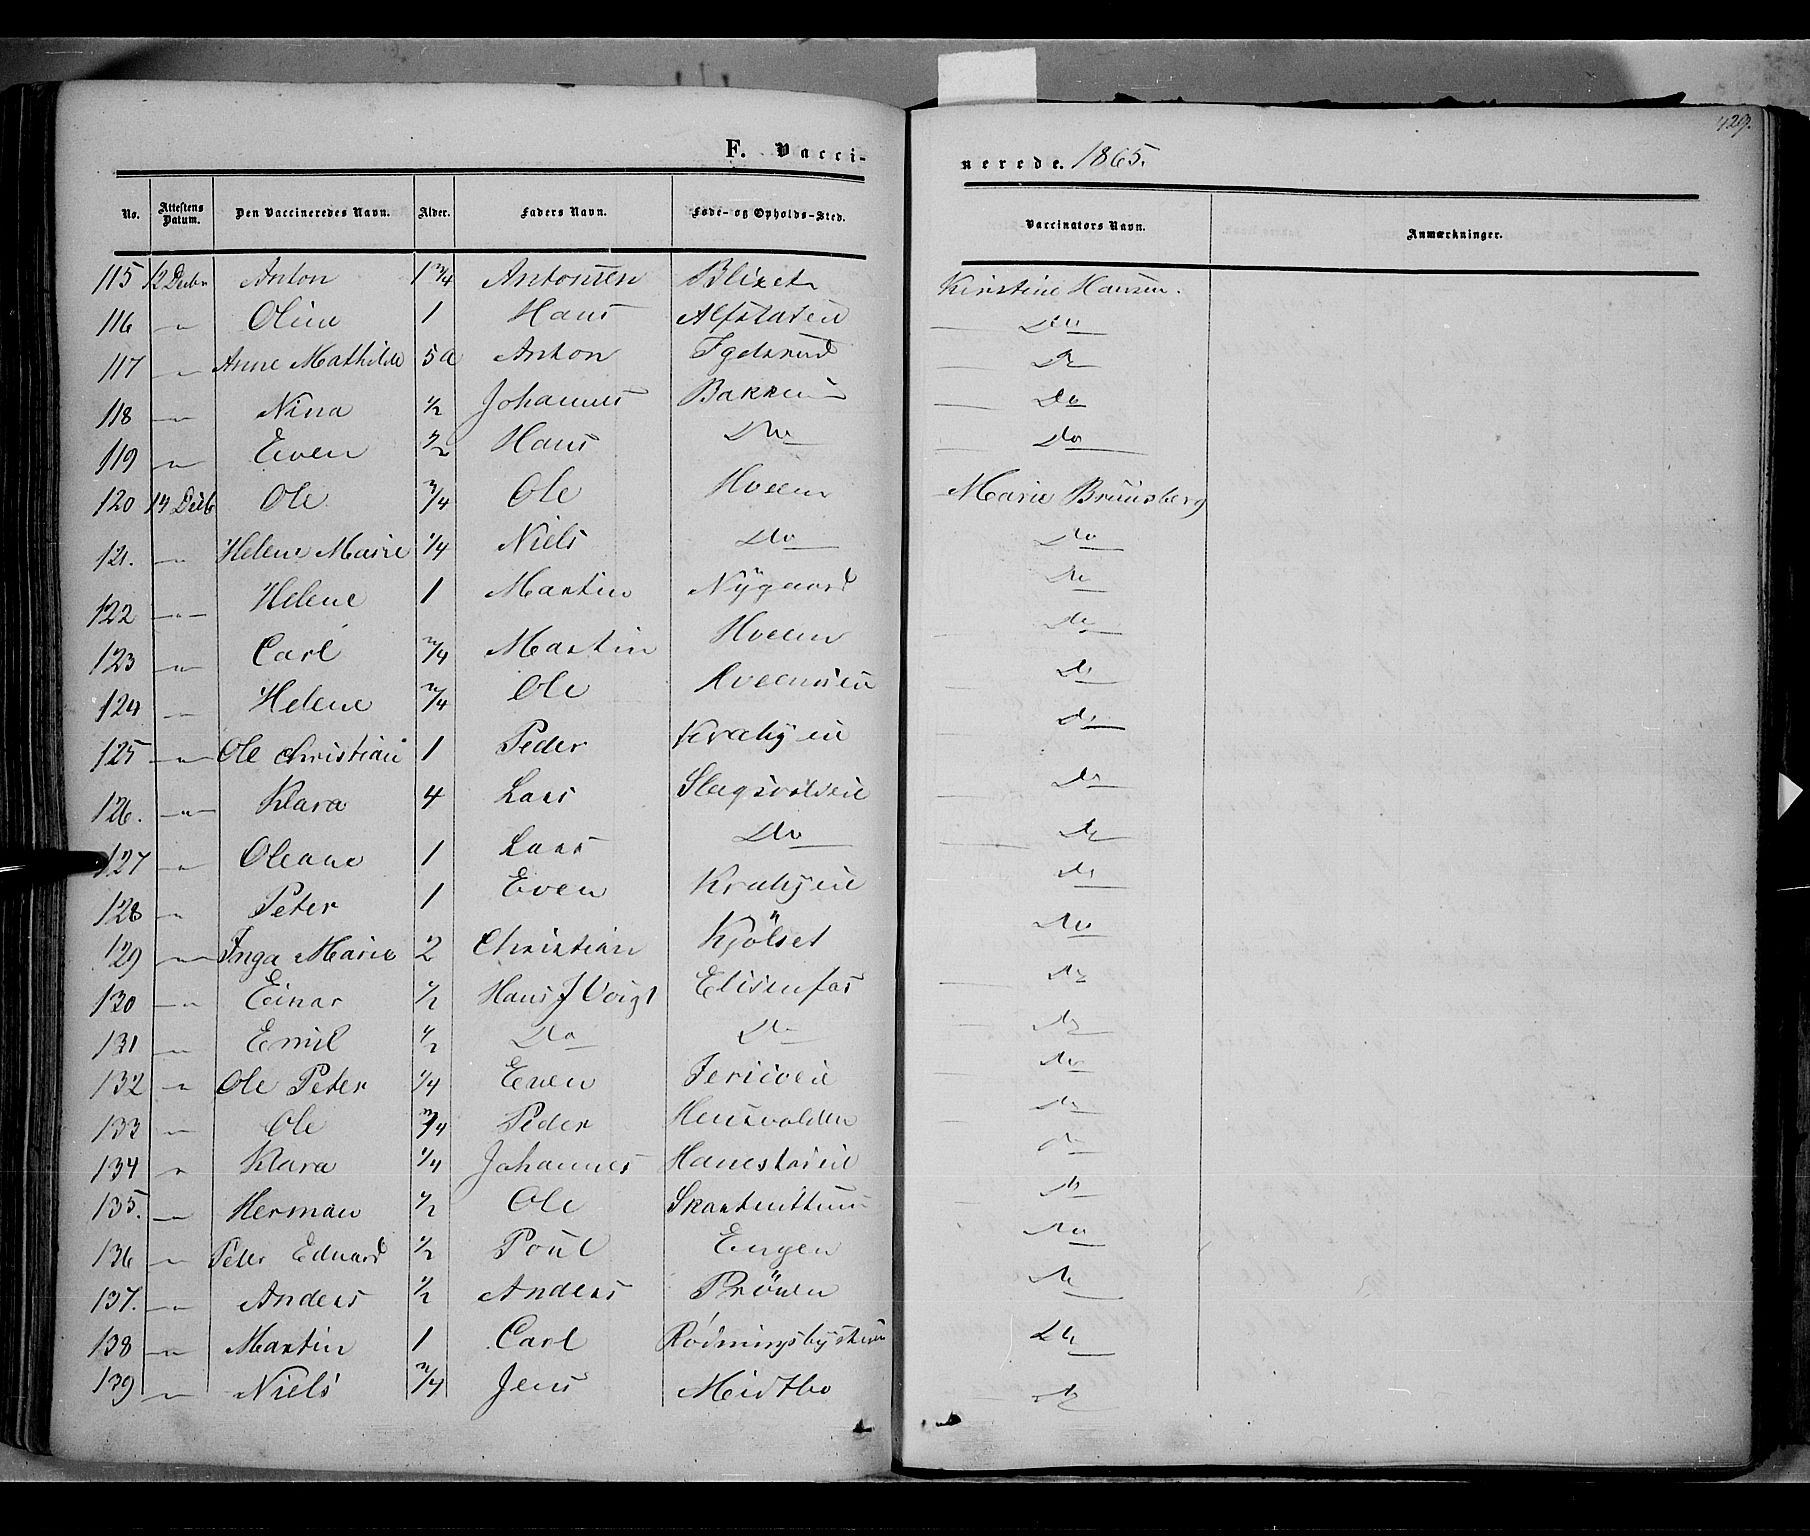 429.
F. Vacci-
nerede. 1865.
No. Attestens Datum. Den Vaccineredes Navn. Alder. Faders Navn. Føde- og Opholds-Sted. Vaccinators Navn. Anmærkninger.
115 12 Decbr Anton 1 3/4 Antonsen Blixet Kirstine Hansen.
116 " Oline 1 Hans Alfstadeie Do
117 " Anne Mathilde 5a Anton Igelsrud Do
118 " Nina 1/2 Johannes Bakken Do
119 " Even 1/2 Hans Do Do
120 14 Decb Ole 3/4 Ole Hveem Marie Bruusberg
121. " Helene Marie 1/4 Niels Do Do
122 " Helene 1 Martin Nÿgaard Do
123 " Carl 3/4 Martin Hveem Do
124 " Helene 3/4 Ole Hveemseie Do
125 " Ole Christian 1 Peder Krabyeie Do
126. " Klara 4 Lars Slagsvoldeie Do
127 " Oleane 1 Lars Do Do
128 " Peter 1 Even Krabyeie Do
129 " Inga Marie 2 Christian Kjölset Do
130 " Einar 1/2 Hans J Voigt Elisenfos Do
131 " Emil 1/2 Do Do Do
132 " Ole Peter 1/4 Even Do
133 " Ole 3/4 Peder Do
134 " Klara 1/4 Johannes Hanestadeie Do
135. " Herman 1/2 Ole Do
136 " Peter Eduard 1/2 Poul Engen Do
137. " Anders 1/2 Anders Pröven Do
138 " Martin 1 Carl Do
139 " Niels 3/4 Jens Midtbo Do